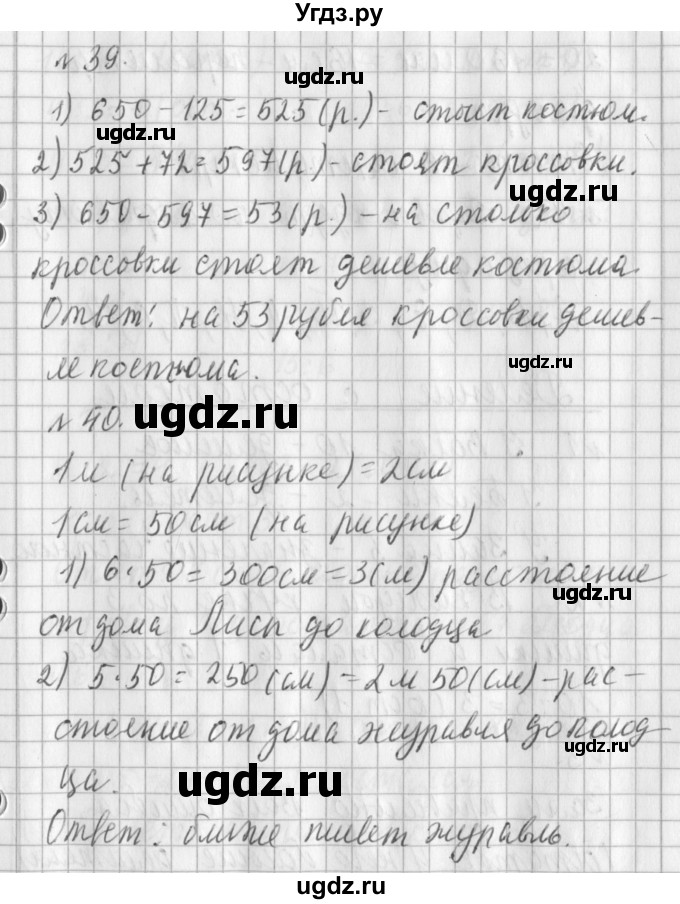 Угдз.ру
№ 39.
1) 650 - 125 = 525 (р.) - стоит костюм.
ugdz.ru
ugdz.ru
2) 525 + 72 = 597 (р.) - стоят кроссовки.
ugdz.ru
3) 650 - 597 = 53 (р.) - на столько
ugdz.ru
кроссовки стоят дешевле костюма
Ответ: на 53 рубля кроссовки дешев-
ugdz.ru
ле костюма.
ugdz.ru
№ 40.
1 м (на рисунке) = 2 см
1 см = 50 см (на рисунке)
1) 6 · 50 = 300 см = 3 (м) расстояние
ugdz.ru
от дома Лисы до колодца
2) 5 · 50 = 250 (см) = 2 м 50 (см) - рас-
стояние от дома журавля до колод-
ugdz.ru
ца.
ugdz.ru
Ответ: ближе живет журавль.
ugdz.ru
ugdz.ru